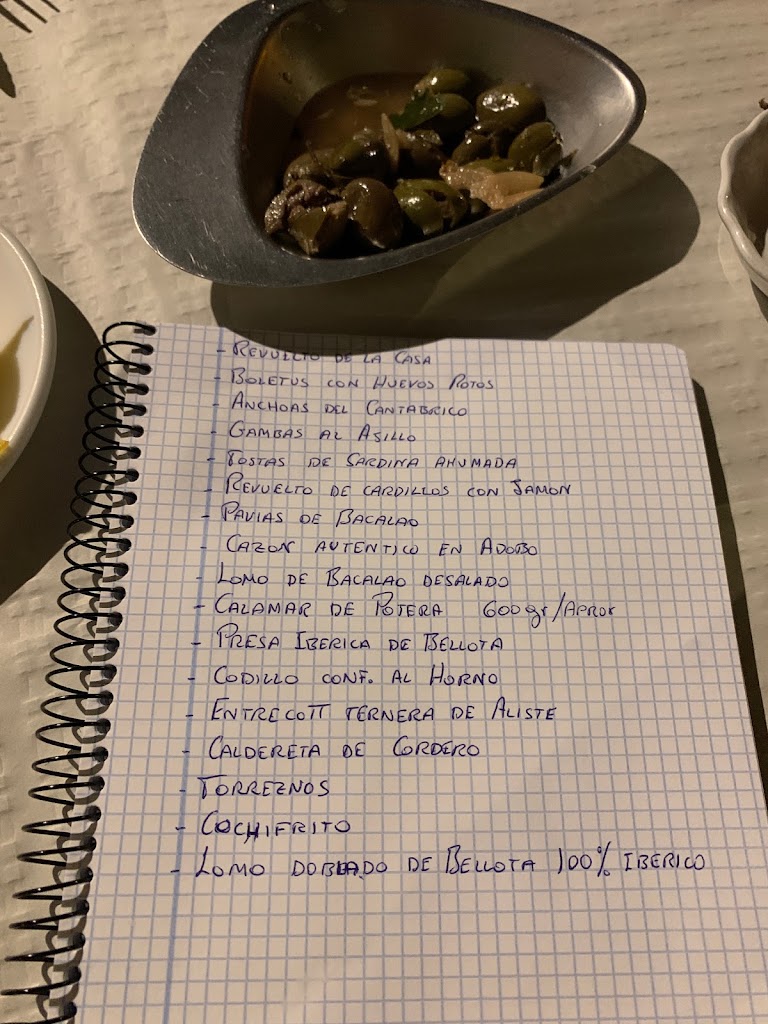 - REVUELTO DE LA CASA
- BOLETUS CON HUEVOS ROTOS
- ANCHOAS DEL CANTABRICO
- GAMBAS AL AJILLO
- TOSTAS DE SARDINA AHUMADA
- REVUELTO DE CARDILLOS CON JAMON
- PAVIAS DE BACALAO
- CAZON AUTENTICO EN ADOBO
- LOMO DE BACALAO DESALADO
- CALAMAR DE POTERA 600gr/APROX
- PRESA IBERICA DE BELLOTA
- CODILLO CONF. AL HORNO
- ENTRECOTT TERNERA DE ALISTE
- CALDERETA DE CORDERO
- TORREZNOS
- COCHIFRITO
- LOMO DOBLADO DE BELLOTA 100% IBERICO